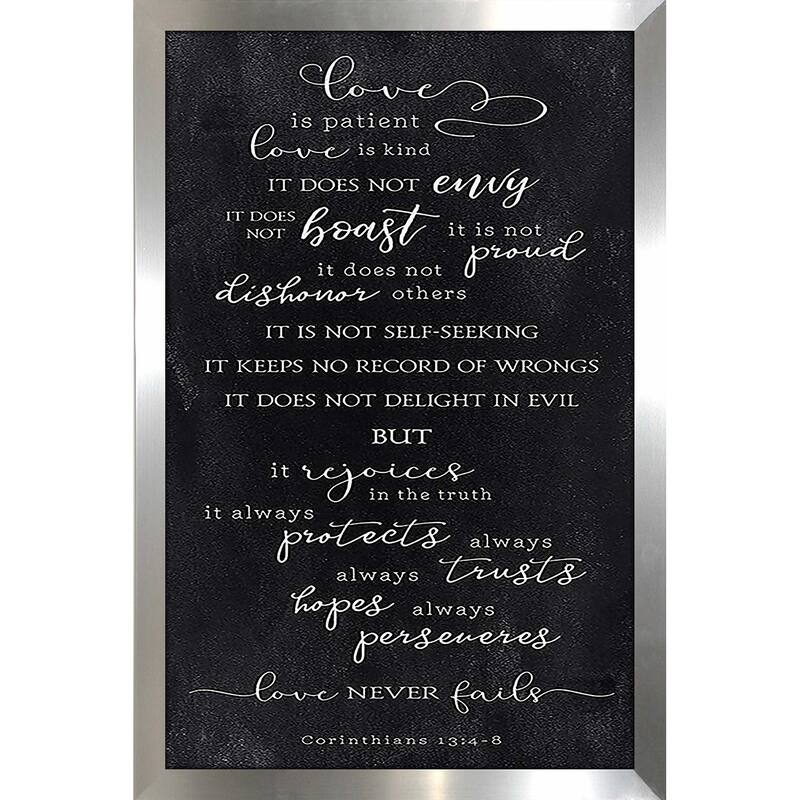 love
is patient
love is kind
IT DOES NOT envy
IT DOES NOT boast it is not
proud
it does not
dishonor others
IT IS NOT SELF-SEEKING
IT KEEPS NO RECORD OF WRONGS
IT DOES NOT DELIGHT IN EVIL
BUT
it rejoices
in the truth
it always
protects always
always trusts
hopes always
perseveres
love NEVER fails
Corinthians 13:4-8